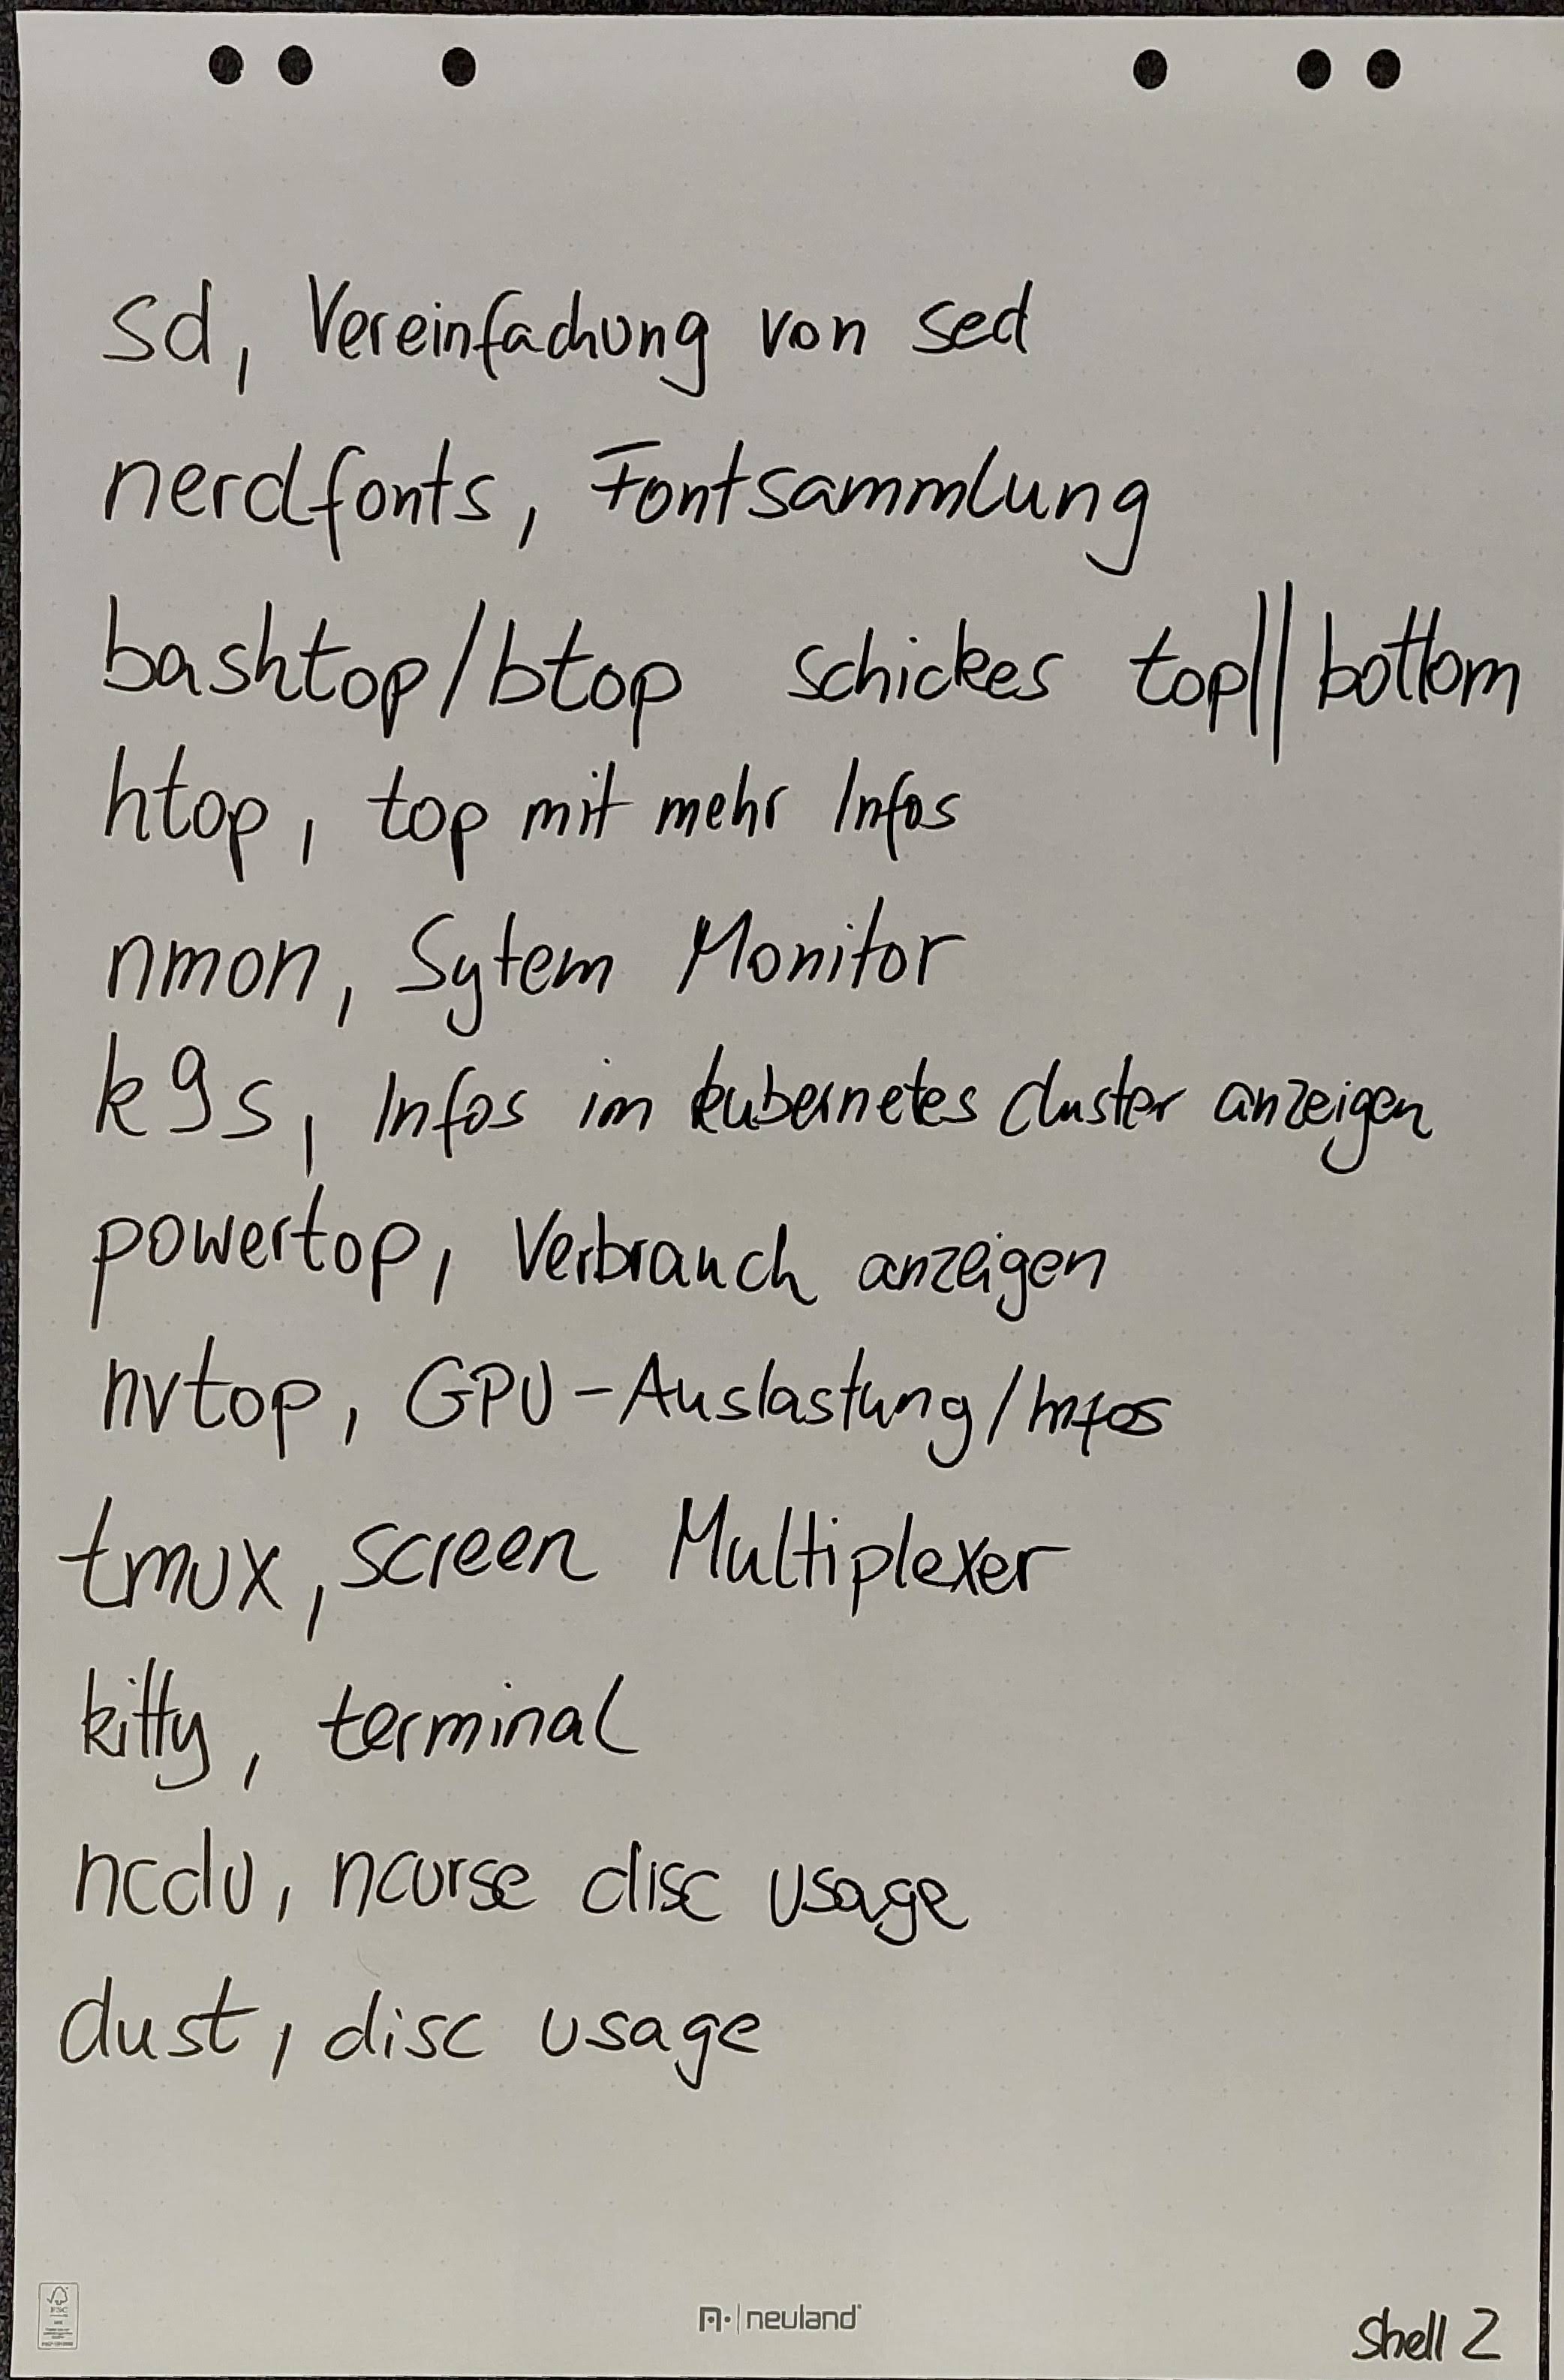 sd, Vereinfachung von sed
nerdfonts, Fontsammlung
bashtop/btop schickes top || bottom
htop, top mit mehr Infos
nmon, Sytem Monitor
k9s, Infos im kubernetes cluster anzeigen
powertop, Verbrauch anzeigen
nvtop, GPU-Auslastung/Infos
tmux, screen Multiplexer
kitty, terminal
ncdu, ncurse disc usage
dust, disc usage
FSC
neuland
Shell 2